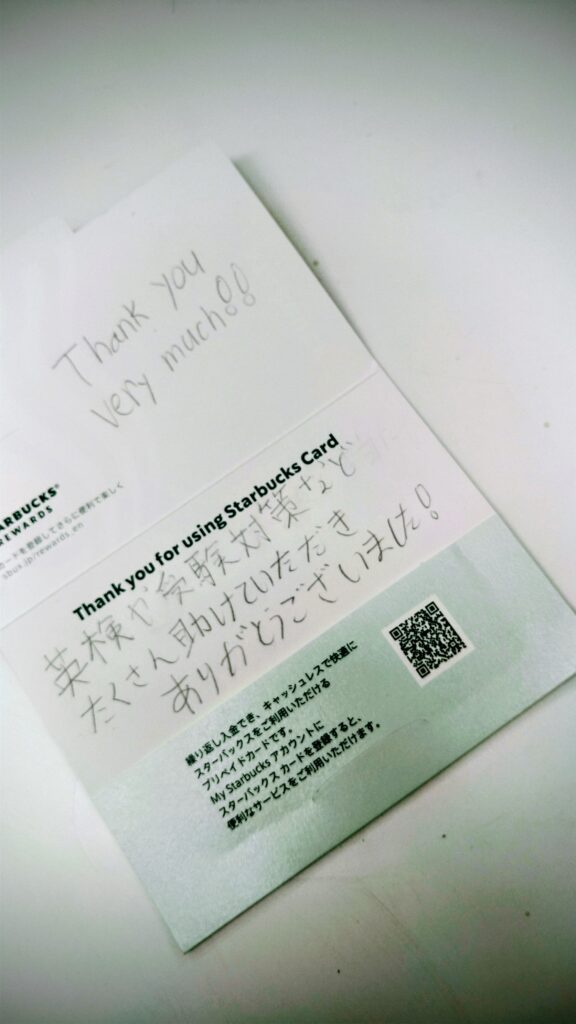 Thank you
very much!!
STARBUCKS®
REWARDS
カードを登録してさらに便利で楽しく
sbux.jp/rewards_en
Thank you for using Starbucks Card
英検や受験対策など
たくさん助けていただき
ありがとうございました!
繰り返し入金でき、キャッシュレスで快適に
スターバックスをご利用いただける
プリペイドカードです。
My Starbucks アカウントに
スターバックス カードを登録すると、
便利なサービスをご利用いただけます。